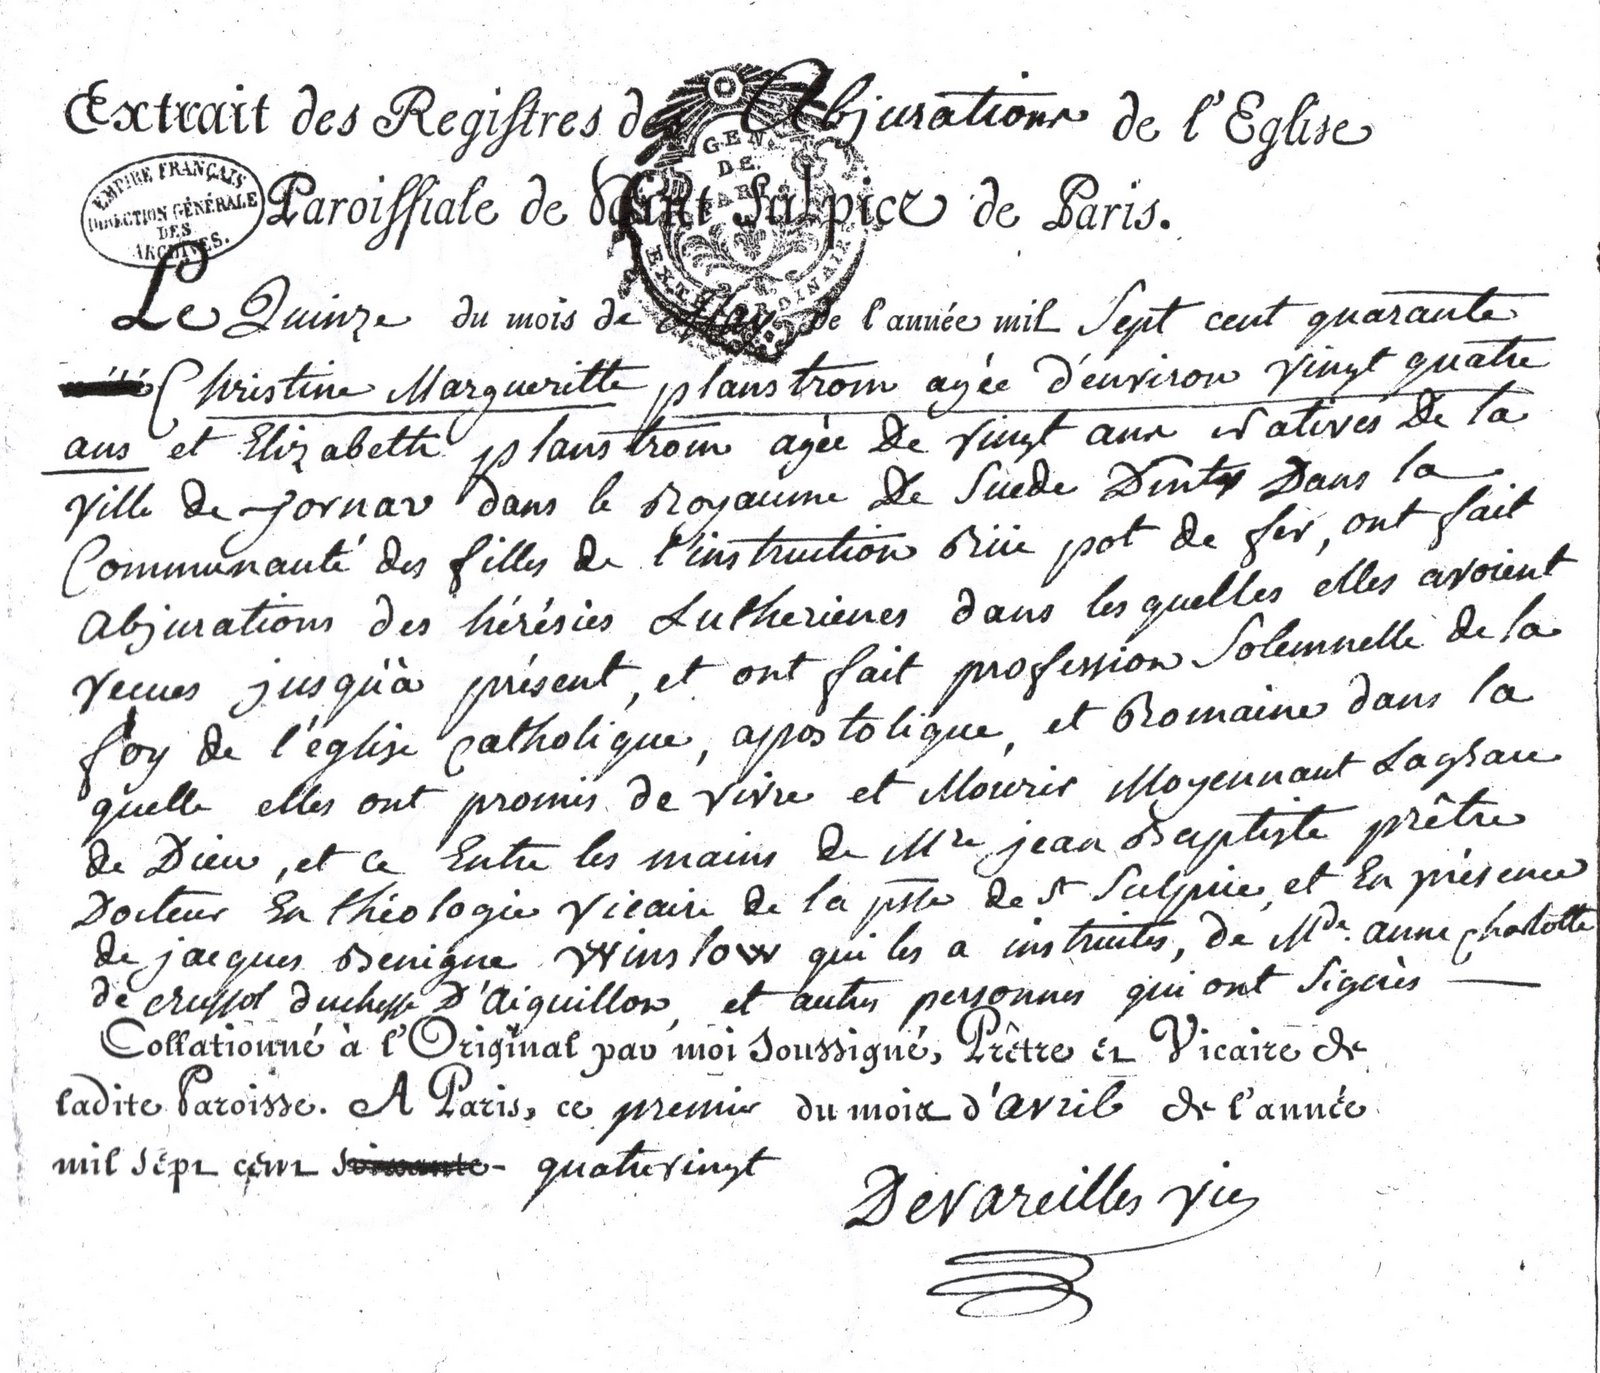 Extrait des Registres des Abjurations de l'Eglise
Paroissiale de Saint Sulpice de Paris.
EMPIRE FRANÇAIS
DIRECTION GÉNÉRALE
DES
ARCHIVES.
GEN.
DE
PAR
EXTRAORDINAIR
Le Quinze du mois de May de l'année mil Sept cent quarante
Christine Margueritte planstrom agée d'environ vingt quatre
ans et Elizabeth planstrom agée De vingt ans natives De la
ville de jornav dans le Royaume De Suede Dans la
Communauté des filles de l'instruction Rüe pot de fer, ont fait
abjurations des hérésies Lutherienes dans les quelles elles avoient
vecues jusqu'à présent, et ont fait profession Solemnelle de la
foy de l'église catholique, apostolique, et Romaine dans la
quelle elles ont promis de vivre et Mourir Moyennant La grace
de Dieu, et ce Entre les mains de Mre jean Baptiste prêtre
Docteur En théologie vicaire de la psse de St Sulpice, et En présence
de jacques Benigne Winslow qui les a instruites, de Mde. anne charlotte
de crussol duchesse D'aiguillon, et autres personnes qui ont Signés
Collationné à l'Original par moi soussigné, Prêtre et Vicaire de
ladite Paroisse. A Paris, ce premier du mois d'avril de l'année
mil sept cent soixante quatrevingt
Devareilles vic